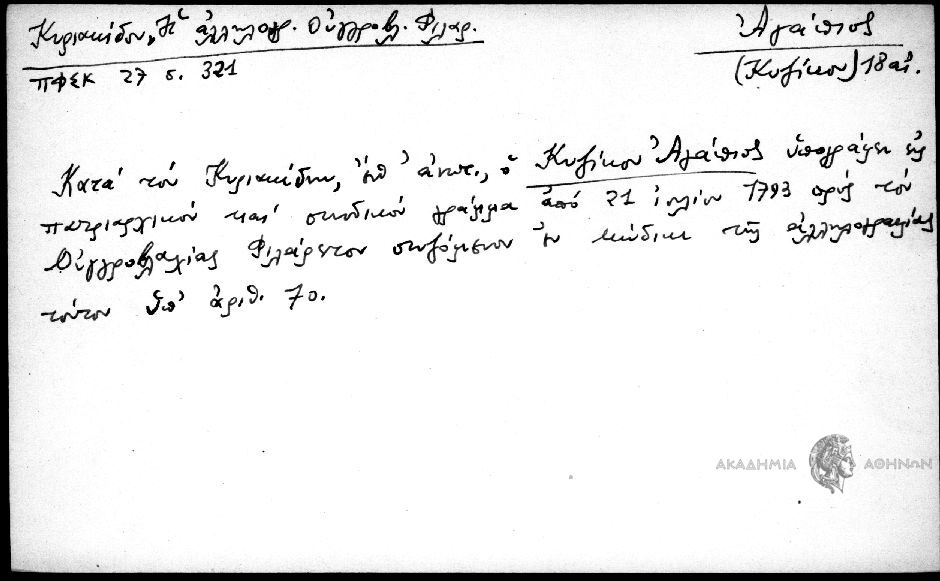 Κυριακίδου, Ἡ ἀλληλογρ. Οὐγγροβλ. Φιλαρ.
ΠΦΣΚ 27 σ. 321
Ἀγάπιος
(Κυζίκου) 18 αἰ.
Κατά τόν Κυριακίδην, ἔνθ' ἀνωτ., ὁ Κυζίκου Ἀγάπιος ὑπογράφει εἰς
πατριαρχικόν καί συνοδικόν γράμμα ἀπό 21 ἰουλίου 1793 πρός τόν
Οὐγγροβλαχίας Φιλάρετον σωζόμενον ἐν κώδικι τῆς ἀλληλογραφίας
τούτου ὑπ' ἀριθ. 70.
ΑΚΑΔΗΜΙΑ ΑΘΗΝΩΝ